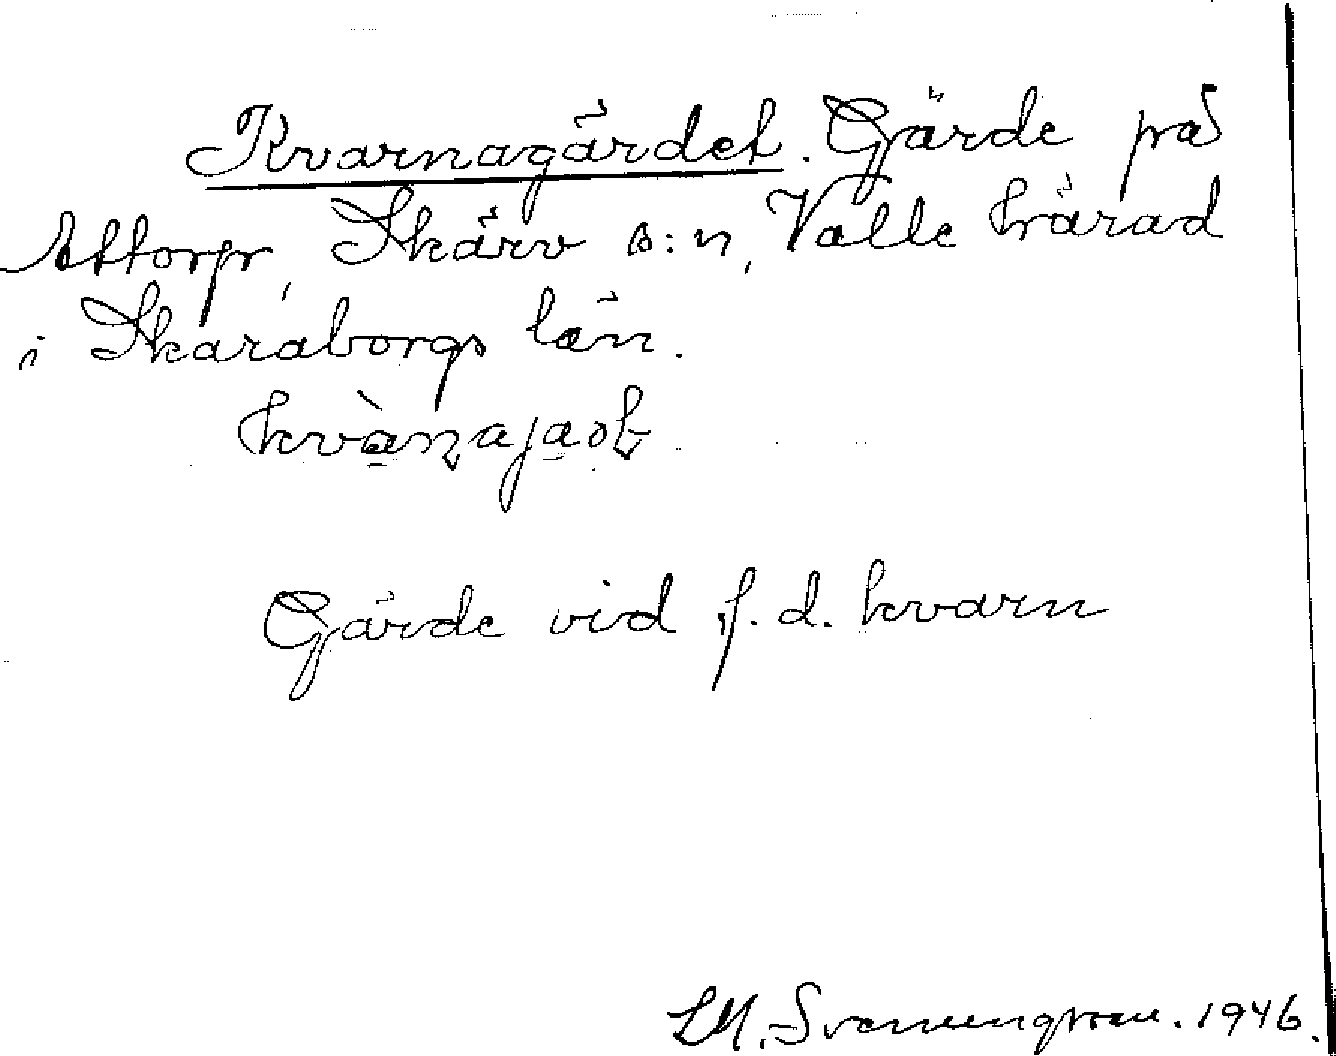 Kvarnagärdet. Gärde på
Attorp, Skärv s:n, Valle härad
i Skaraborgs län.
Gärde vid f.d. kvarn
LM. Svenungsson. 1946.